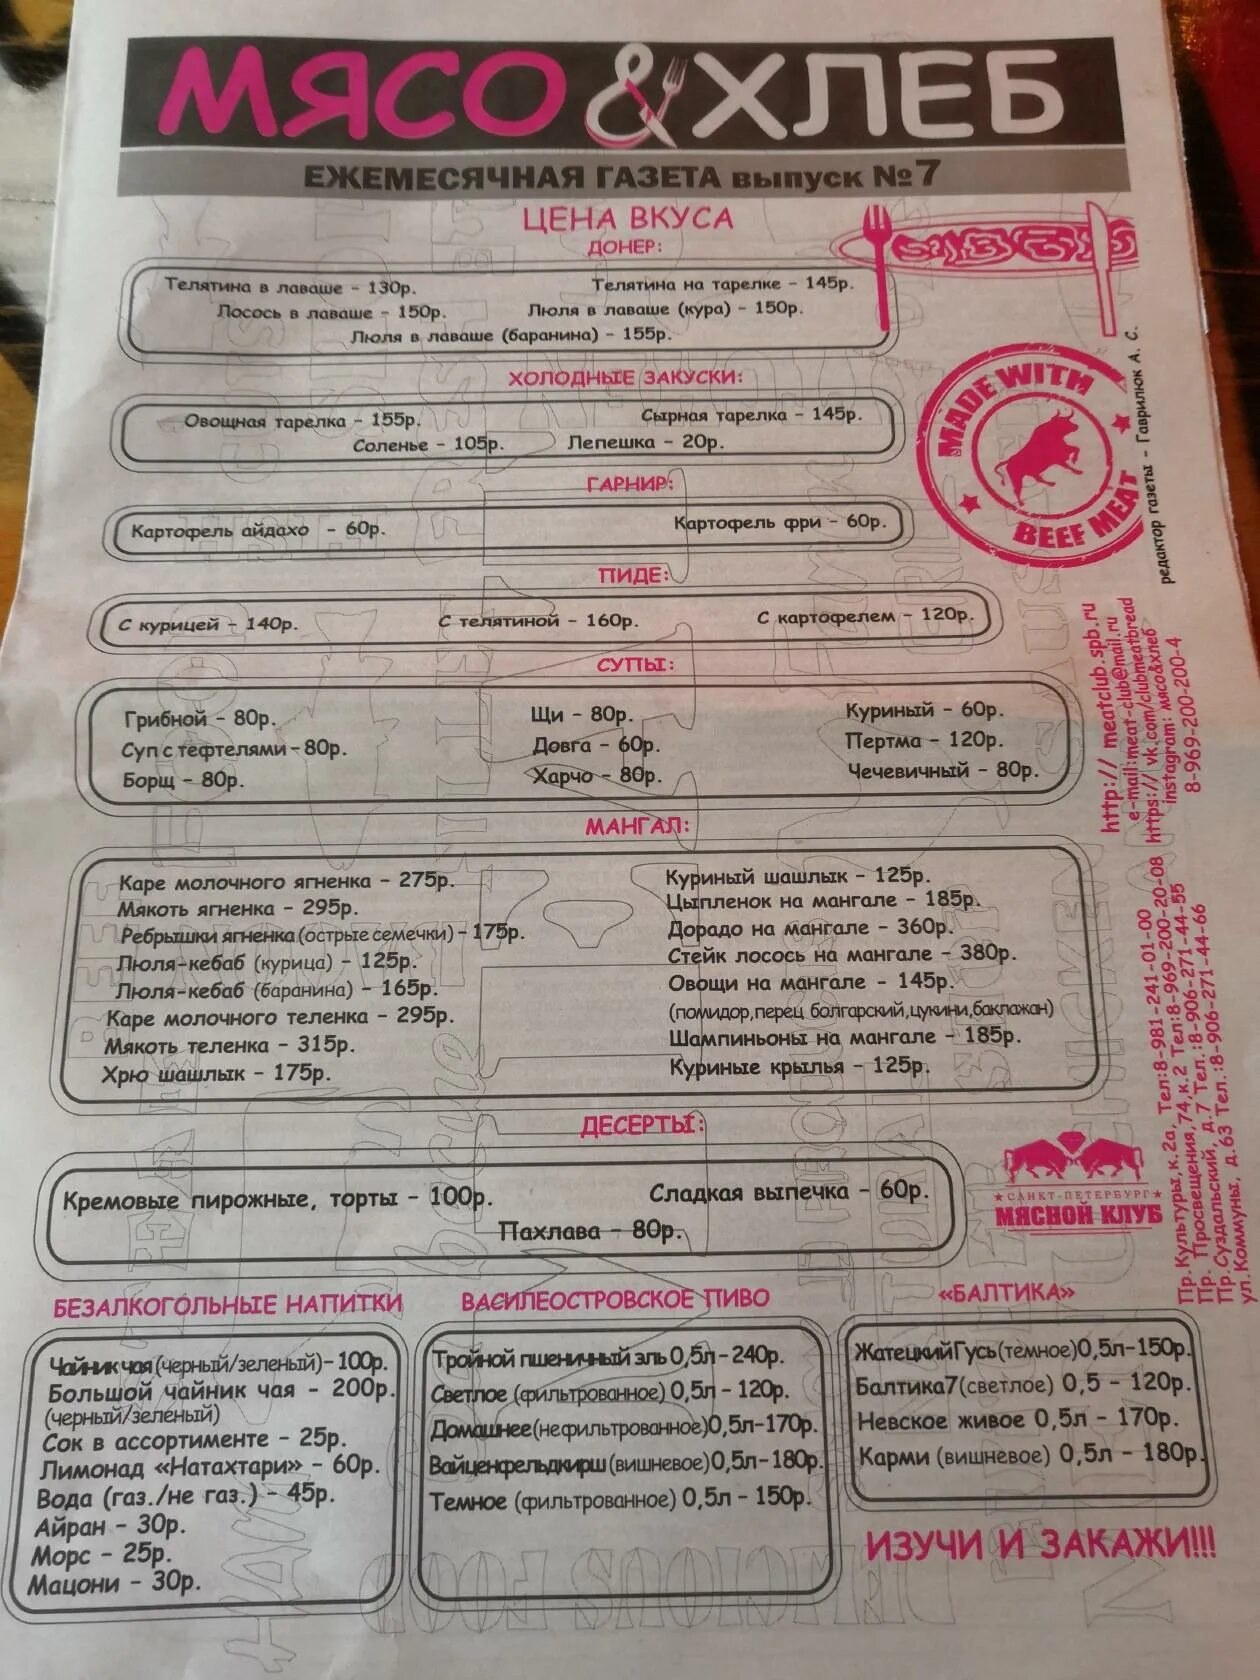 МЯСО & ХЛЕБ
ЕЖЕМЕСЯЧНАЯ ГАЗЕТА выпуск №7
ЦЕНА ВКУСА
ДОНЕР:
Телятина в лаваше - 130р. Телятина на тарелке - 145р.
Лосось в лаваше - 150р. Люля в лаваше (кура) - 150р.
Люля в лаваше (баранина) - 155р.
ХОЛОДНЫЕ ЗАКУСКИ:
Овощная тарелка - 155р. Сырная тарелка - 145р.
Соленье - 105р. Лепешка - 20р.
ГАРНИР:
Картофель айдахо - 60р. Картофель фри - 60р.
ПИДЕ:
С курицей - 140р. С телятиной - 160р. С картофелем - 120р.
СУПЫ:
Грибной - 80р. Щи - 80р. Куриный - 60р.
Суп с тефтелями - 80р. Довга - 60р. Пертма - 120р.
Борщ - 80р. Харчо - 80р. Чечевичный - 80р.
МАНГАЛ:
Каре молочного ягненка - 275р.
Мякоть ягненка - 295р.
Ребрышки ягненка (острые семечки) - 175р.
Люля-кебаб (курица) - 125р.
Люля-кебаб (баранина) - 165р.
Каре молочного теленка - 295р.
Мякоть теленка - 315р.
Хрю шашлык - 175р.
Куриный шашлык - 125р.
Цыпленок на мангале - 185р.
Дорадо на мангале - 360р.
Стейк лосось на мангале - 380р.
Овощи на мангале - 145р.
(помидор,перец болгарский,цукини,баклажан)
Шампиньоны на мангале - 185р.
Куриные крылья - 125р.
ДЕСЕРТЫ:
Кремовые пирожные, торты - 100р. Сладкая выпечка - 60р.
Пахлава - 80р.
БЕЗАЛКОГОЛЬНЫЕ НАПИТКИ
Чайник чая (черный/зеленый) - 100р.
Большой чайник чая - 200р.
(черный/зеленый)
Сок в ассортименте - 25р.
Лимонад «Натахтари» - 60р.
Вода (газ./не газ.) - 45р.
Айран - 30р.
Морс - 25р.
Мацони - 30р.
ВАСИЛЕОСТРОВСКОЕ ПИВО
Тройной пшеничный эль 0,5л - 240р.
Светлое (фильтрованное) 0,5л - 120р.
Домашнее (нефильтрованное) 0,5л - 170р.
Вайценфельдкирш (вишневое) 0,5л - 180р.
Темное (фильтрованное) 0,5л - 150р.
«БАЛТИКА»
Жатецкий Гусь (темное) 0,5л - 150р.
Балтика7 (светлое) 0,5 - 120р.
Невское живое 0,5л - 170р.
Карми (вишневое) 0,5л - 180р.
ИЗУЧИ И ЗАКАЖИ!!!
MADE WITH
BEEF MEAT
редактор газеты - Гаврилюк А. С.
http:// meatclub.spb.ru
e-mail:meat-club@mail.ru
https:// vk.com/clubmeatbread
instagram: мясо&хлеб
8-969-200-200-4
САНКТ-ПЕТЕРБУРГ
МЯСНОЙ КЛУБ
Пр. Культуры,к.2а, Тел:8-981-241-01-00
Пр. Просвещения,74,к.2 Тел:8-969-200-20-08
Пр. Суздальский, д.7 Тел.:8-906-271-44-55
ул.Коммуны, д.63 Тел.:8-906-271-44-66